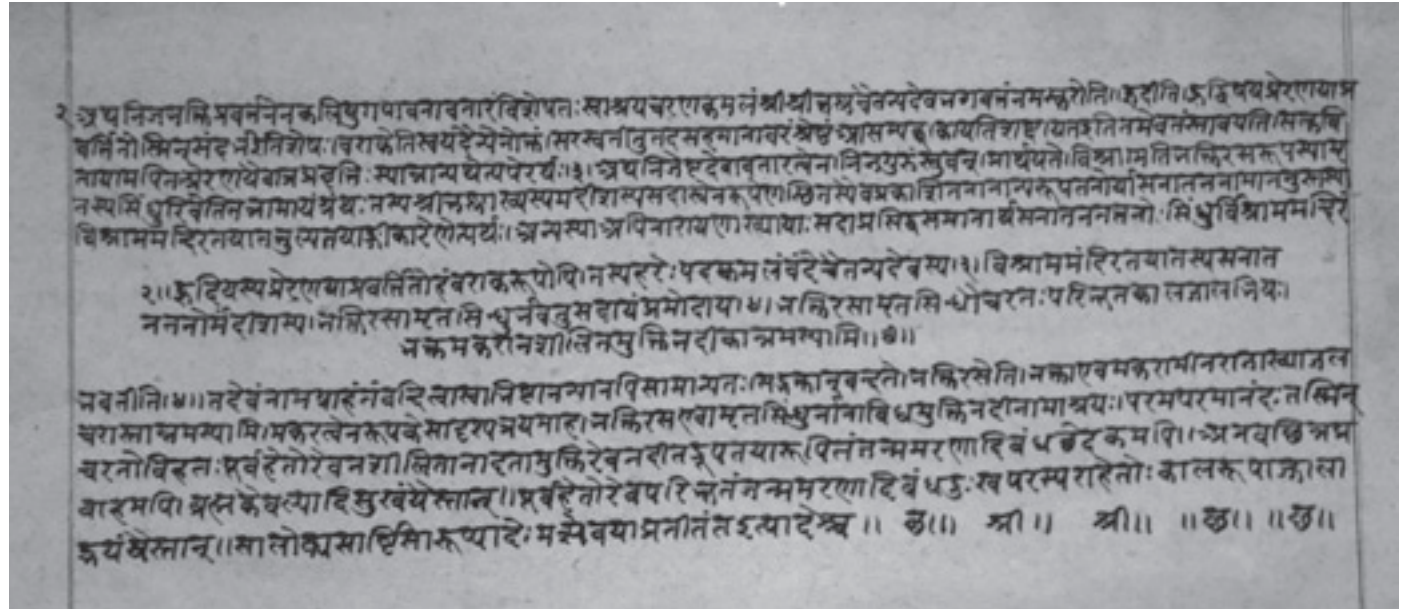 २ अथ निजभक्तिप्रवर्त्तनेन कलियुगपावनावतारं विशेषतः स्वाश्रयचरणकमलं श्रीश्रीकृष्णचैतन्यदेवभगवंतं नमस्करोति। हृदीति। हृद्विषयप्रेरणया प्र
वर्त्तितोस्मिन्संदर्भ इति शेषः। वराकेति स्वयं दैन्येनोक्तं। सरस्वती तु तदसहमाना वरं श्रेष्ठं आ सम्यक् कायति शब्दायत इति तमेव तं स्तावयति।
तायामपि तत्प्रेरणयैवात्र प्रवृत्तिः स्यान्नान्यथेत्यपेरर्थः।३। अथ निजेष्टदेवावतारत्वेन निजगुरुं स्तुवन् प्रार्थयते। विश्रामेति भक्तिरसरूपस्यामृ
तस्य सिंधुरिवेति तन्नामायं ग्रंथः तस्य श्रीकृष्णाख्यस्य मदीशस्य सदा त्वेन रूपेण स्थितस्यैव प्रकाशितनानान्यरूपतनोर्या सनातननामा तनुस्तस्या
विश्राममंदिरतया तत्तुल्यतयांगीकारेणेत्यर्थः। अन्यस्या अपि नारायणाख्यायाः सदा प्रसिद्धसमानार्थसनातनतनोः सिंधुर्विश्राममंदिरं
२॥ हृदि यस्य प्रेरणया प्रवर्त्तितोहं वराकरूपोपि। तस्य हरेः पदकमलं वंदे चैतन्यदेवस्य।३। विश्राममंदिरतया तस्य सनात
नतनोर्मदीशस्य। भक्तिरसामृतसिन्धुर्भवतु सदायं प्रमोदाय।४। भक्तिरसामृतसिन्धौ चरतः परिभूतकालजालभियः।
भक्तमकरानशीलितमुक्तिनदीकान्नमस्यामि॥५॥
भवतीति।४॥ तदेवं नाम
चरास्तान्नमस्यामि। मकरत्वेन रूपके सादृश्यत्रयमाह। भक्तिरस एवामृतसिंधुर्नानाविधमुक्तिनदीनामाश्रयः। परमपरमानंदः तस्मिन्
चरतो विहरतः पूर्वहेतोरेव न शीलिता नादृता मुक्तिरेव नदी तद्रूपतया रूपितं जन्ममरणादिबंधच्छेदकमपि। अनवच्छिन्नप्र
वाहमपि। ब्रह्मकैवल्यादिसुखं यैस्तान्॥ पूर्वहेतोरेव परिभूतं जन्ममरणादिबंधदुःखपरम्पराहेतोः कालरूपाज्जाला
द्भयं यैस्तान्॥ सालोक्यसार्ष्टिसारूप्यादेः मत्सेवया प्रतीतं त इत्यादेश्च॥ छ॥ श्री॥ श्री॥ ॥छ॥ ॥छ॥